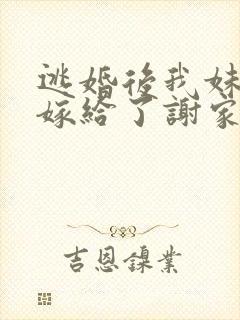 逃婚後我妹
嫁給了謝家
吉恩鎳業